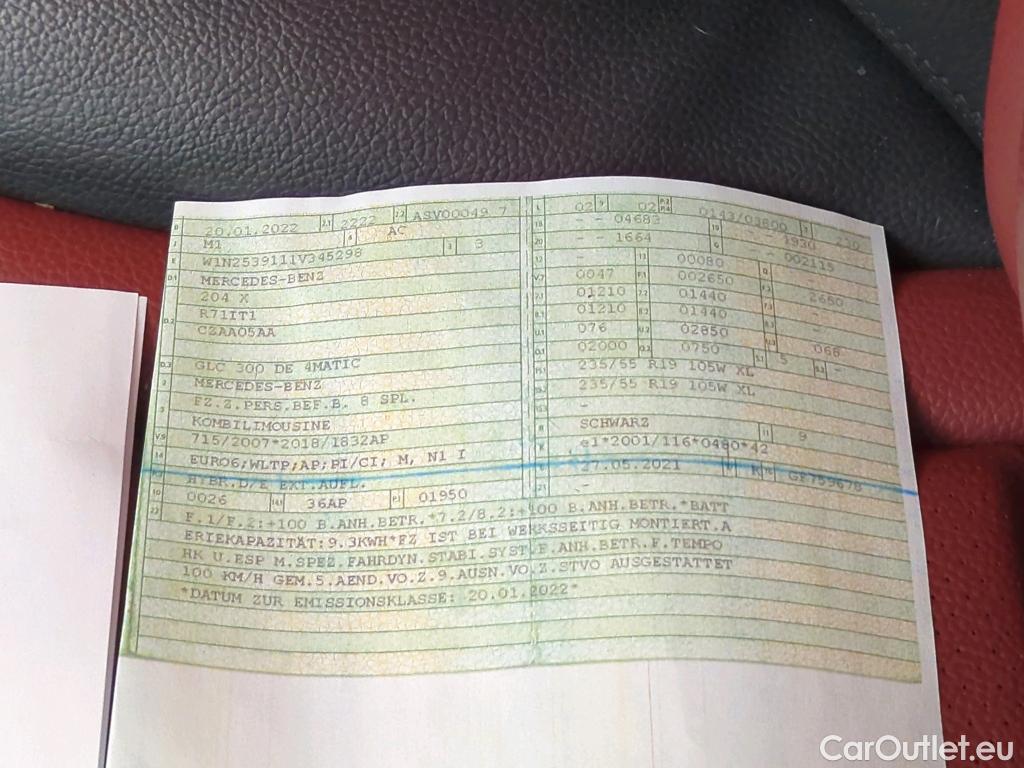 B 20.01.2022 2.1 2222 2.2 ASV00049 7
J M1 4 AC
E W1N2539111V345298 3 3
D.1 MERCEDES-BENZ
204 X
D.2 R71IT1
CZAA05AA
D.3 GLC 300 DE 4MATIC
2 MERCEDES-BENZ
5 FZ.Z.PERS.BEF.B. 8 SPL.
KOMBILIMOUSINE
V.9 715/2007*2018/1832AP
14 EURO6;WLTP;AP;PI/CI; M, N1 I
HYBR.D/E EXT.AUFL.
10 0026 14.1 36AP P.1 01950
L 02 9 02 P.2 P.4 0143/03800 T 230
18 - - 04683 19 - - 1930
20 - - 1664 G - 002115
12 - 13 00080 Q -
V.7 0047 F.1 002650 F.2 2650
7.1 01210 7.2 01440 7.3 -
8.1 01210 8.2 01440 8.3 -
U.1 076 U.2 02850 U.3 066
O.1 02000 O.2 0750 S.1 5 S.2 -
15.1 235/55 R19 105W XL
15.2 235/55 R19 105W XL
15.3 -
R SCHWARZ 11 9
K e1*2001/116*0480*42
6 27.05.2021 17 K 16 GF759678
21 -
22 F.1/F.2:+100 B.ANH.BETR.*7.2/8.2:+100 B.ANH.BETR.*BATT
ERIEKAPAZITÄT:9.3KWH*FZ IST BEI WERKSSEITIG MONTIERT.A
HK U.ESP M.SPEZ.FAHRDYN.STABI.SYST.F.ANH.BETR.F.TEMPO
100 KM/H GEM.5.AEND.VO.Z.9.AUSN.VO.Z.STVO AUSGESTATTET
*DATUM ZUR EMISSIONSKLASSE: 20.01.2022*
CarOutlet.eu